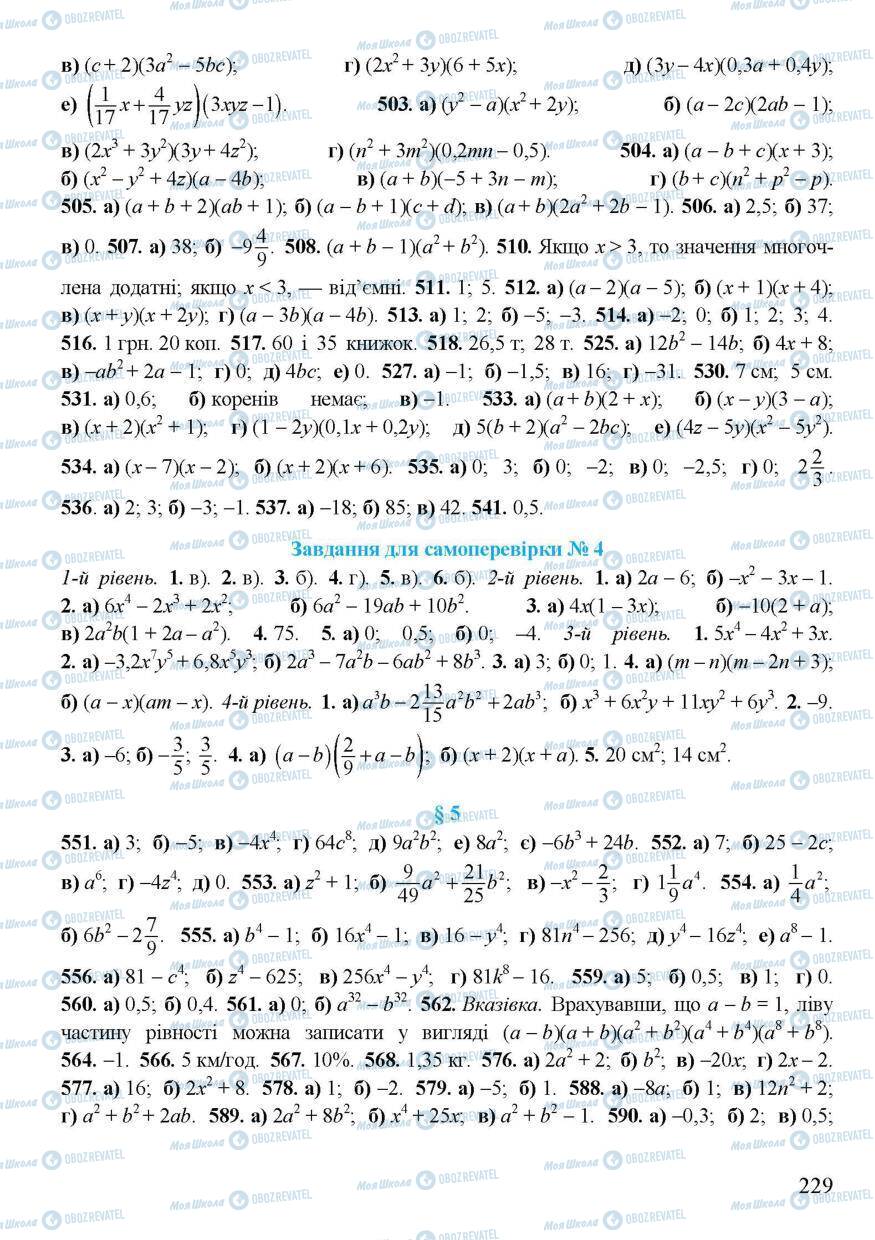 в) (c + 2)(3a² – 5bc); г) (2x² + 3y)(6 + 5x); д) (3y – 4x)(0,3a + 0,4y);
е) (1/17 x + 4/17 yz)(3xyz – 1). 503. а) (y² – a)(x² + 2y); б) (a – 2c)(2ab – 1);
в) (2x³ + 3y²)(3y + 4z²); г) (n² + 3m²)(0,2mn – 0,5). 504. а) (a – b + c)(x + 3);
б) (x² – y² + 4z)(a – 4b); в) (a + b)(–5 + 3n – m); г) (b + c)(n² + p² – p).
505. а) (a + b + 2)(ab + 1); б) (a – b + 1)(c + d); в) (a + b)(2a² + 2b – 1). 506. а) 2,5; б) 37;
в) 0. 507. а) 38; б) –9 4/9. 508. (a + b – 1)(a² + b²). 510. Якщо x > 3, то значення многоч-
лена додатні; якщо x < 3, — від’ємні. 511. 1; 5. 512. а) (a – 2)(a – 5); б) (x + 1)(x + 4);
в) (x + y)(x + 2y); г) (a – 3b)(a – 4b). 513. а) 1; 2; б) –5; –3. 514. а) –2; 0; б) 1; 2; 3; 4.
516. 1 грн. 20 коп. 517. 60 і 35 книжок. 518. 26,5 т; 28 т. 525. а) 12b² – 14b; б) 4x + 8;
в) –ab² + 2a – 1; г) 0; д) 4bc; е) 0. 527. а) –1; б) –1,5; в) 16; г) –31. 530. 7 см; 5 см.
531. а) 0,6; б) коренів немає; в) –1. 533. а) (a + b)(2 + x); б) (x – y)(3 – a);
в) (x + 2)(x² + 1); г) (1 – 2y)(0,1x + 0,2y); д) 5(b + 2)(a² – 2bc); е) (4z – 5y)(x² – 5y²).
534. а) (x – 7)(x – 2); б) (x + 2)(x + 6). 535. а) 0; 3; б) 0; –2; в) 0; –2,5; г) 0; 2 2/3.
536. а) 2; 3; б) –3; –1. 537. а) –18; б) 85; в) 42. 541. 0,5.
Завдання для самоперевірки № 4
1-й рівень. 1. в). 2. в). 3. б). 4. г). 5. в). 6. б). 2-й рівень. 1. а) 2a – 6; б) –x² – 3x – 1.
2. а) 6x⁴ – 2x³ + 2x²; б) 6a² – 19ab + 10b². 3. а) 4x(1 – 3x); б) –10(2 + a);
в) 2a²b(1 + 2a – a²). 4. 75. 5. а) 0; 0,5; б) 0; –4. 3-й рівень. 1. 5x⁴ – 4x² + 3x.
2. а) –3,2x⁷y⁵ + 6,8x⁵y³; б) 2a³ – 7a²b – 6ab² + 8b³. 3. а) 3; б) 0; 1. 4. а) (m – n)(m – 2n + 3);
б) (a – x)(am – x). 4-й рівень. 1. а) a³b – 2 13/15 a²b² + 2ab³; б) x³ + 6x²y + 11xy² + 6y³. 2. –9.
3. а) –6; б) –3/5; 3/5. 4. а) (a – b)(2/9 + a – b); б) (x + 2)(x + a). 5. 20 см²; 14 см².
§ 5
551. а) 3; б) –5; в) –4x⁴; г) 64c⁸; д) 9a²b²; е) 8a²; є) –6b³ + 24b. 552. а) 7; б) 25 – 2c;
в) a⁶; г) –4z⁴; д) 0. 553. а) z² + 1; б) 9/49 a² + 21/25 b²; в) –x² – 2/3; г) 1 1/9 a⁴. 554. а) 1/4 a²;
б) 6b² – 2 7/9. 555. а) b⁴ – 1; б) 16x⁴ – 1; в) 16 – y⁴; г) 81n⁴ – 256; д) y⁴ – 16z⁴; е) a⁸ – 1.
556. а) 81 – c⁴; б) z⁴ – 625; в) 256x⁴ – y⁴; г) 81k⁸ – 16. 559. а) 5; б) 0,5; в) 1; г) 0.
560. а) 0,5; б) 0,4. 561. а) 0; б) a³² – b³². 562. Вказівка. Врахувавши, що a – b = 1, ліву
частину рівності можна записати у вигляді (a – b)(a + b)(a² + b²)(a⁴ + b⁴)(a⁸ + b⁸).
564. –1. 566. 5 км/год. 567. 10%. 568. 1,35 кг. 576. а) 2a² + 2; б) b²; в) –20x; г) 2x – 2.
577. а) 16; б) 2x² + 8. 578. а) 1; б) –2. 579. а) –5; б) 1. 588. а) –8a; б) 1; в) 12n² + 2;
г) a² + b² + 2ab. 589. а) 2a² + 8b²; б) x⁴ + 25x; в) a² + b² – 1. 590. а) –0,3; б) 2; в) 0,5;
229